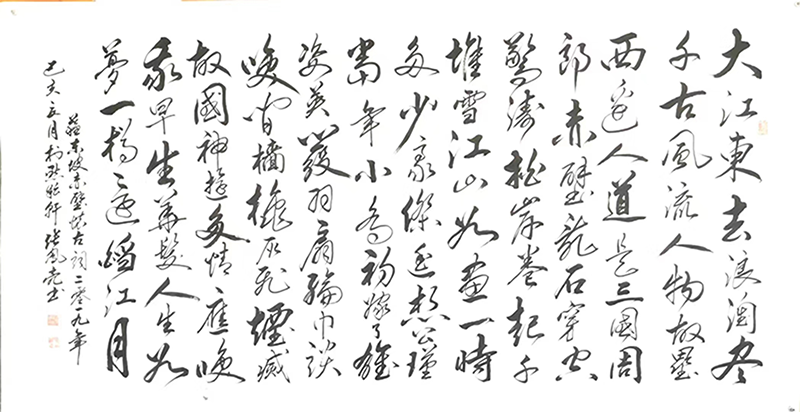 大江東去浪淘尽
千古風流人物故壘
西邊人道是三國周
郎赤壁亂石穿空
驚濤拍岸卷起千
堆雪江山如畫一時
多少豪傑遥想公瑾
當年小喬初嫁了雄
姿英發羽扇綸巾談
笑間檣櫓灰飛煙滅
故國神遊多情應笑
我早生華髮人生如
夢一樽還酹江月
蘇東坡赤壁懷古詞二零一九年
己亥五月於軒張鳳书